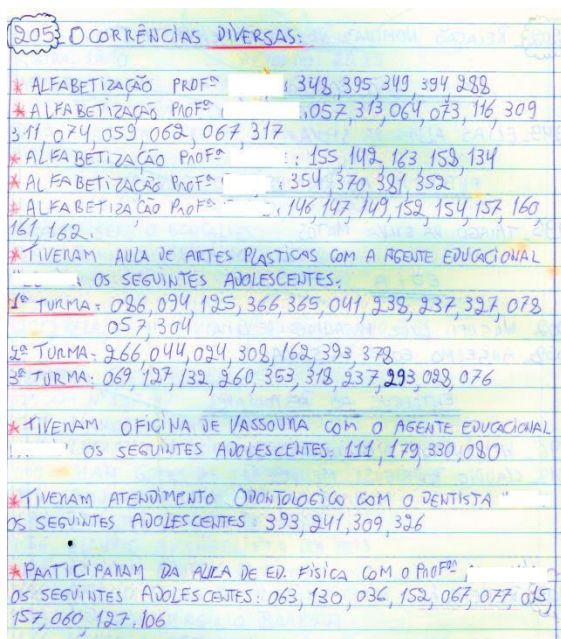 205 OCORRÊNCIAS DIVERSAS:
* ALFABETIZAÇÃO PROFª : 348, 395, 349, 394, 288
* ALFABETIZAÇÃO PROFª , 057, 313, 064, 073, 116, 309
311, 074, 059, 062, 067, 317
* ALFABETIZAÇÃO PROFª : 155, 142, 163, 158, 134
* ALFABETIZAÇÃO PROFª : 354, 370, 381, 352
* ALFABETIZAÇÃO PROFª , 146, 147, 149, 152, 154, 157, 160,
161, 162.
* TIVERAM AULA DE ARTES PLASTICAS COM A AGENTE EDUCACIONAL
" OS SEGUINTES ADOLESCENTES:
1ª TURMA: 086, 094, 125, 366, 365, 041, 238, 237, 327, 078
057, 304
2ª TURMA: 266, 044, 024, 308, 162, 393, 378
3ª TURMA: 069, 127, 132, 260, 353, 318, 237, 293, 028, 076
* TIVERAM OFICINA DE VASSOURA COM O AGENTE EDUCACIONAL
OS SEGUINTES ADOLESCENTES: 111, 179, 330, 080
* TIVERAM ATENDIMENTO ODONTOLOGICO COM O DENTISTA "
OS SEGUINTES ADOLESCENTES: 393, 241, 309, 326
* PARTICIPARAM DA AULA DE ED. FISICA COM O PROFº
OS SEGUINTES ADOLESCENTES: 063, 130, 036, 152, 067, 077, 015,
157, 060, 127, 106